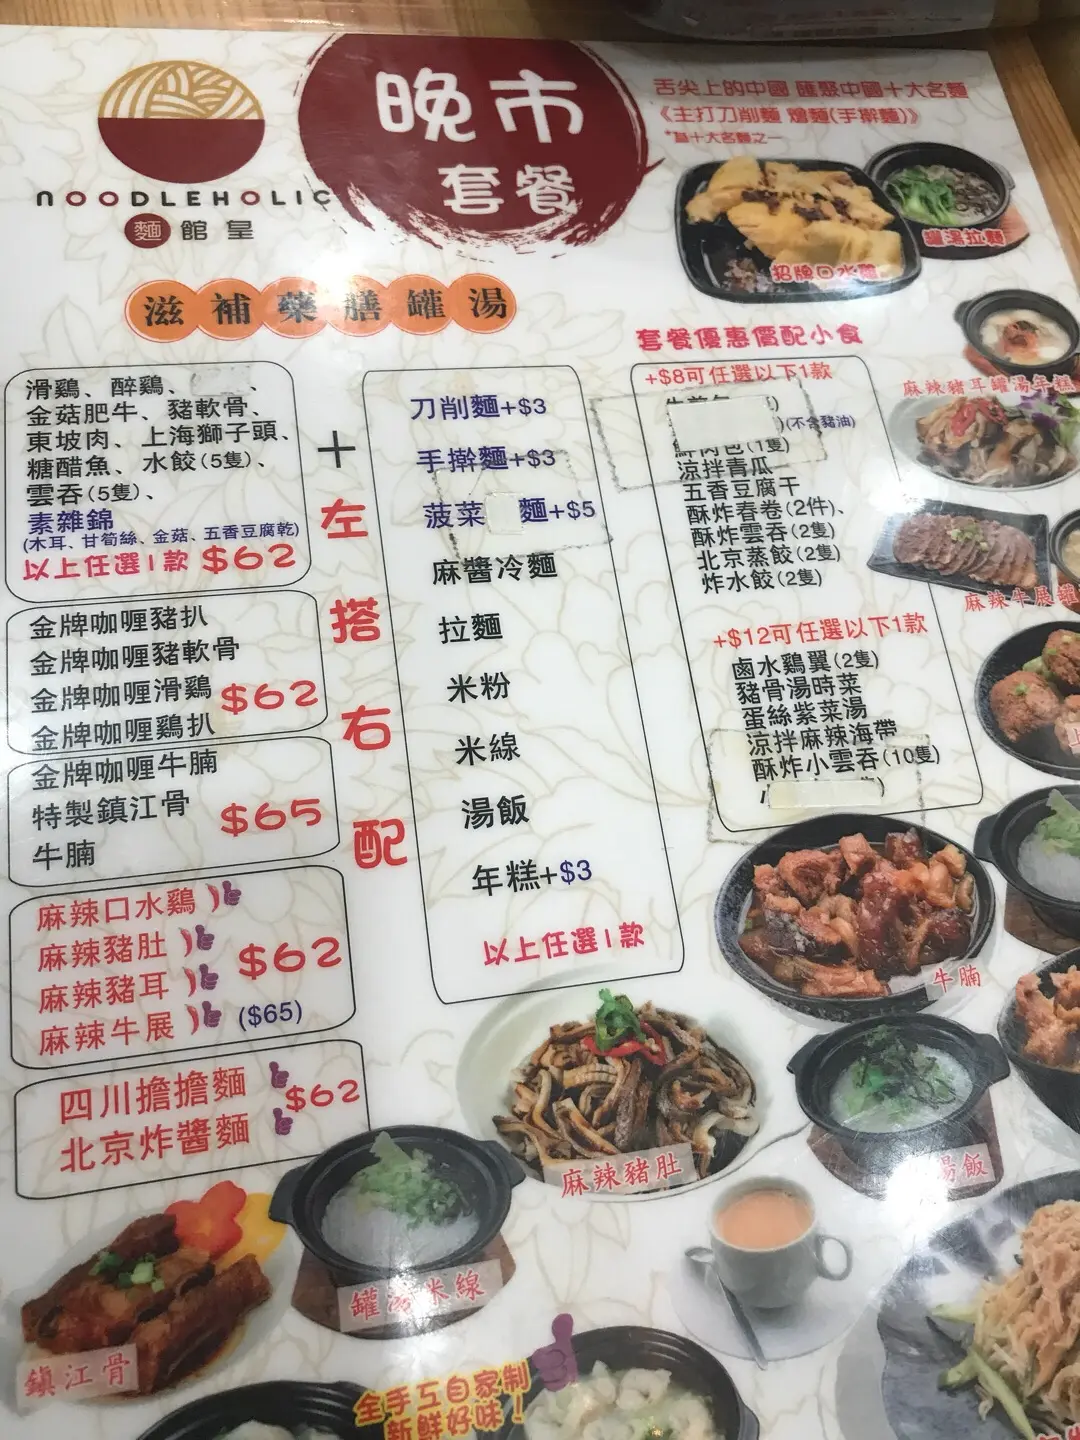 NOODLEHOLIC
麵館皇
晚市
套餐
舌尖上的中國 匯聚中國十大名麵
《主打刀削麵 燴麵(手擀麵)》
*為十大名麵之一
招牌口水雞
罐湯拉麵
滋補藥膳罐湯
滑鷄、醉鷄、 、
金菇肥牛、豬軟骨、
東坡肉、上海獅子頭、
糖醋魚、水餃(5隻)、
雲吞(5隻)、
素雜錦
(木耳、甘筍絲、金菇、五香豆腐乾)
以上任選1款 $62
金牌咖喱豬扒
金牌咖喱豬軟骨
金牌咖喱滑鷄
金牌咖喱鷄扒
$62
金牌咖喱牛腩
特製鎮江骨
牛腩
$65
麻辣口水鷄
麻辣豬肚
麻辣豬耳
$62
麻辣牛展
($65)
四川擔擔麵
北京炸醬麵
$62
+
左
搭
右
配
刀削麵+$3
手擀麵+$3
菠菜 麵+$5
麻醬冷麵
拉麵
米粉
米線
湯飯
年糕+$3
以上任選1款
套餐優惠價配小食
+$8可任選以下1款
(不含豬油)
鮮肉包(1隻)
涼拌青瓜
五香豆腐干
酥炸春卷(2件)、
酥炸雲吞(2隻)
北京蒸餃(2隻)
炸水餃(2隻)
+$12可任選以下1款
鹵水鷄翼(2隻)
豬骨湯時菜
蛋絲紫菜湯
涼拌麻辣海帶
酥炸小雲吞(10隻)
麻辣豬耳罐湯年糕
麻辣牛展罐
牛腩
麻辣豬肚
湯飯
罐湯米線
鎮江骨
全手工自家制
新鮮好味！